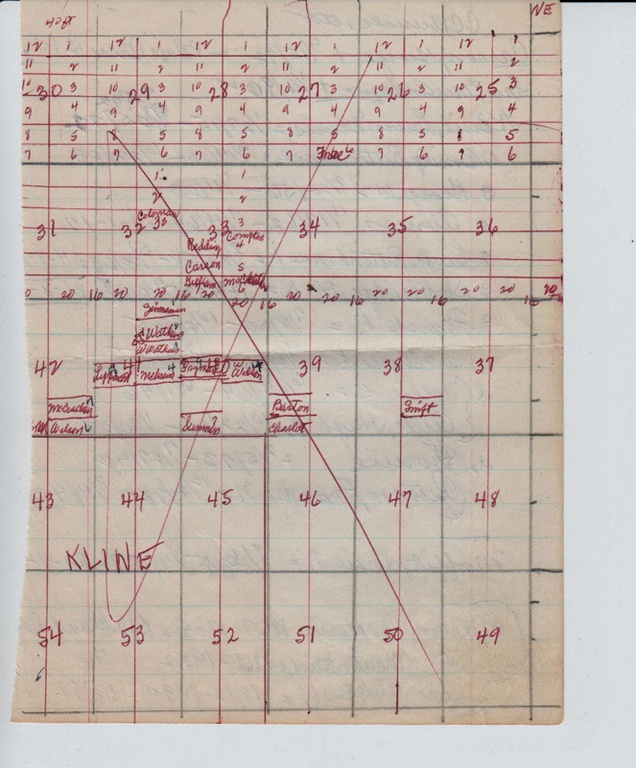 40ft NE
12 1 12 1 12 1 12 1 12 1 12 1
11 2 11 2 11 2 11 2 11 2 11 2
10 30 3 10 29 3 10 28 3 10 27 3 10 26 3 10 25 3
9 4 9 4 9 4 9 4 9 4 9 4
8 5 8 5 8 5 8 5 8 5 8 5
7 6 7 6 7 6 7 6 7 6 7 6
1 1
2 2
Coloman
31 32 33 3 34 35 36
Redding Compton 4
Carson 5
20 16 20 20 16 20 20 16 20 20 16 20 20 16 20
Zimmerman
Watkins
Watkins
42 41 40 39 38 37
McCracken Barton Swift
Wilson Sumner
43 44 45 46 47 48
KLINE
54 53 52 51 50 49